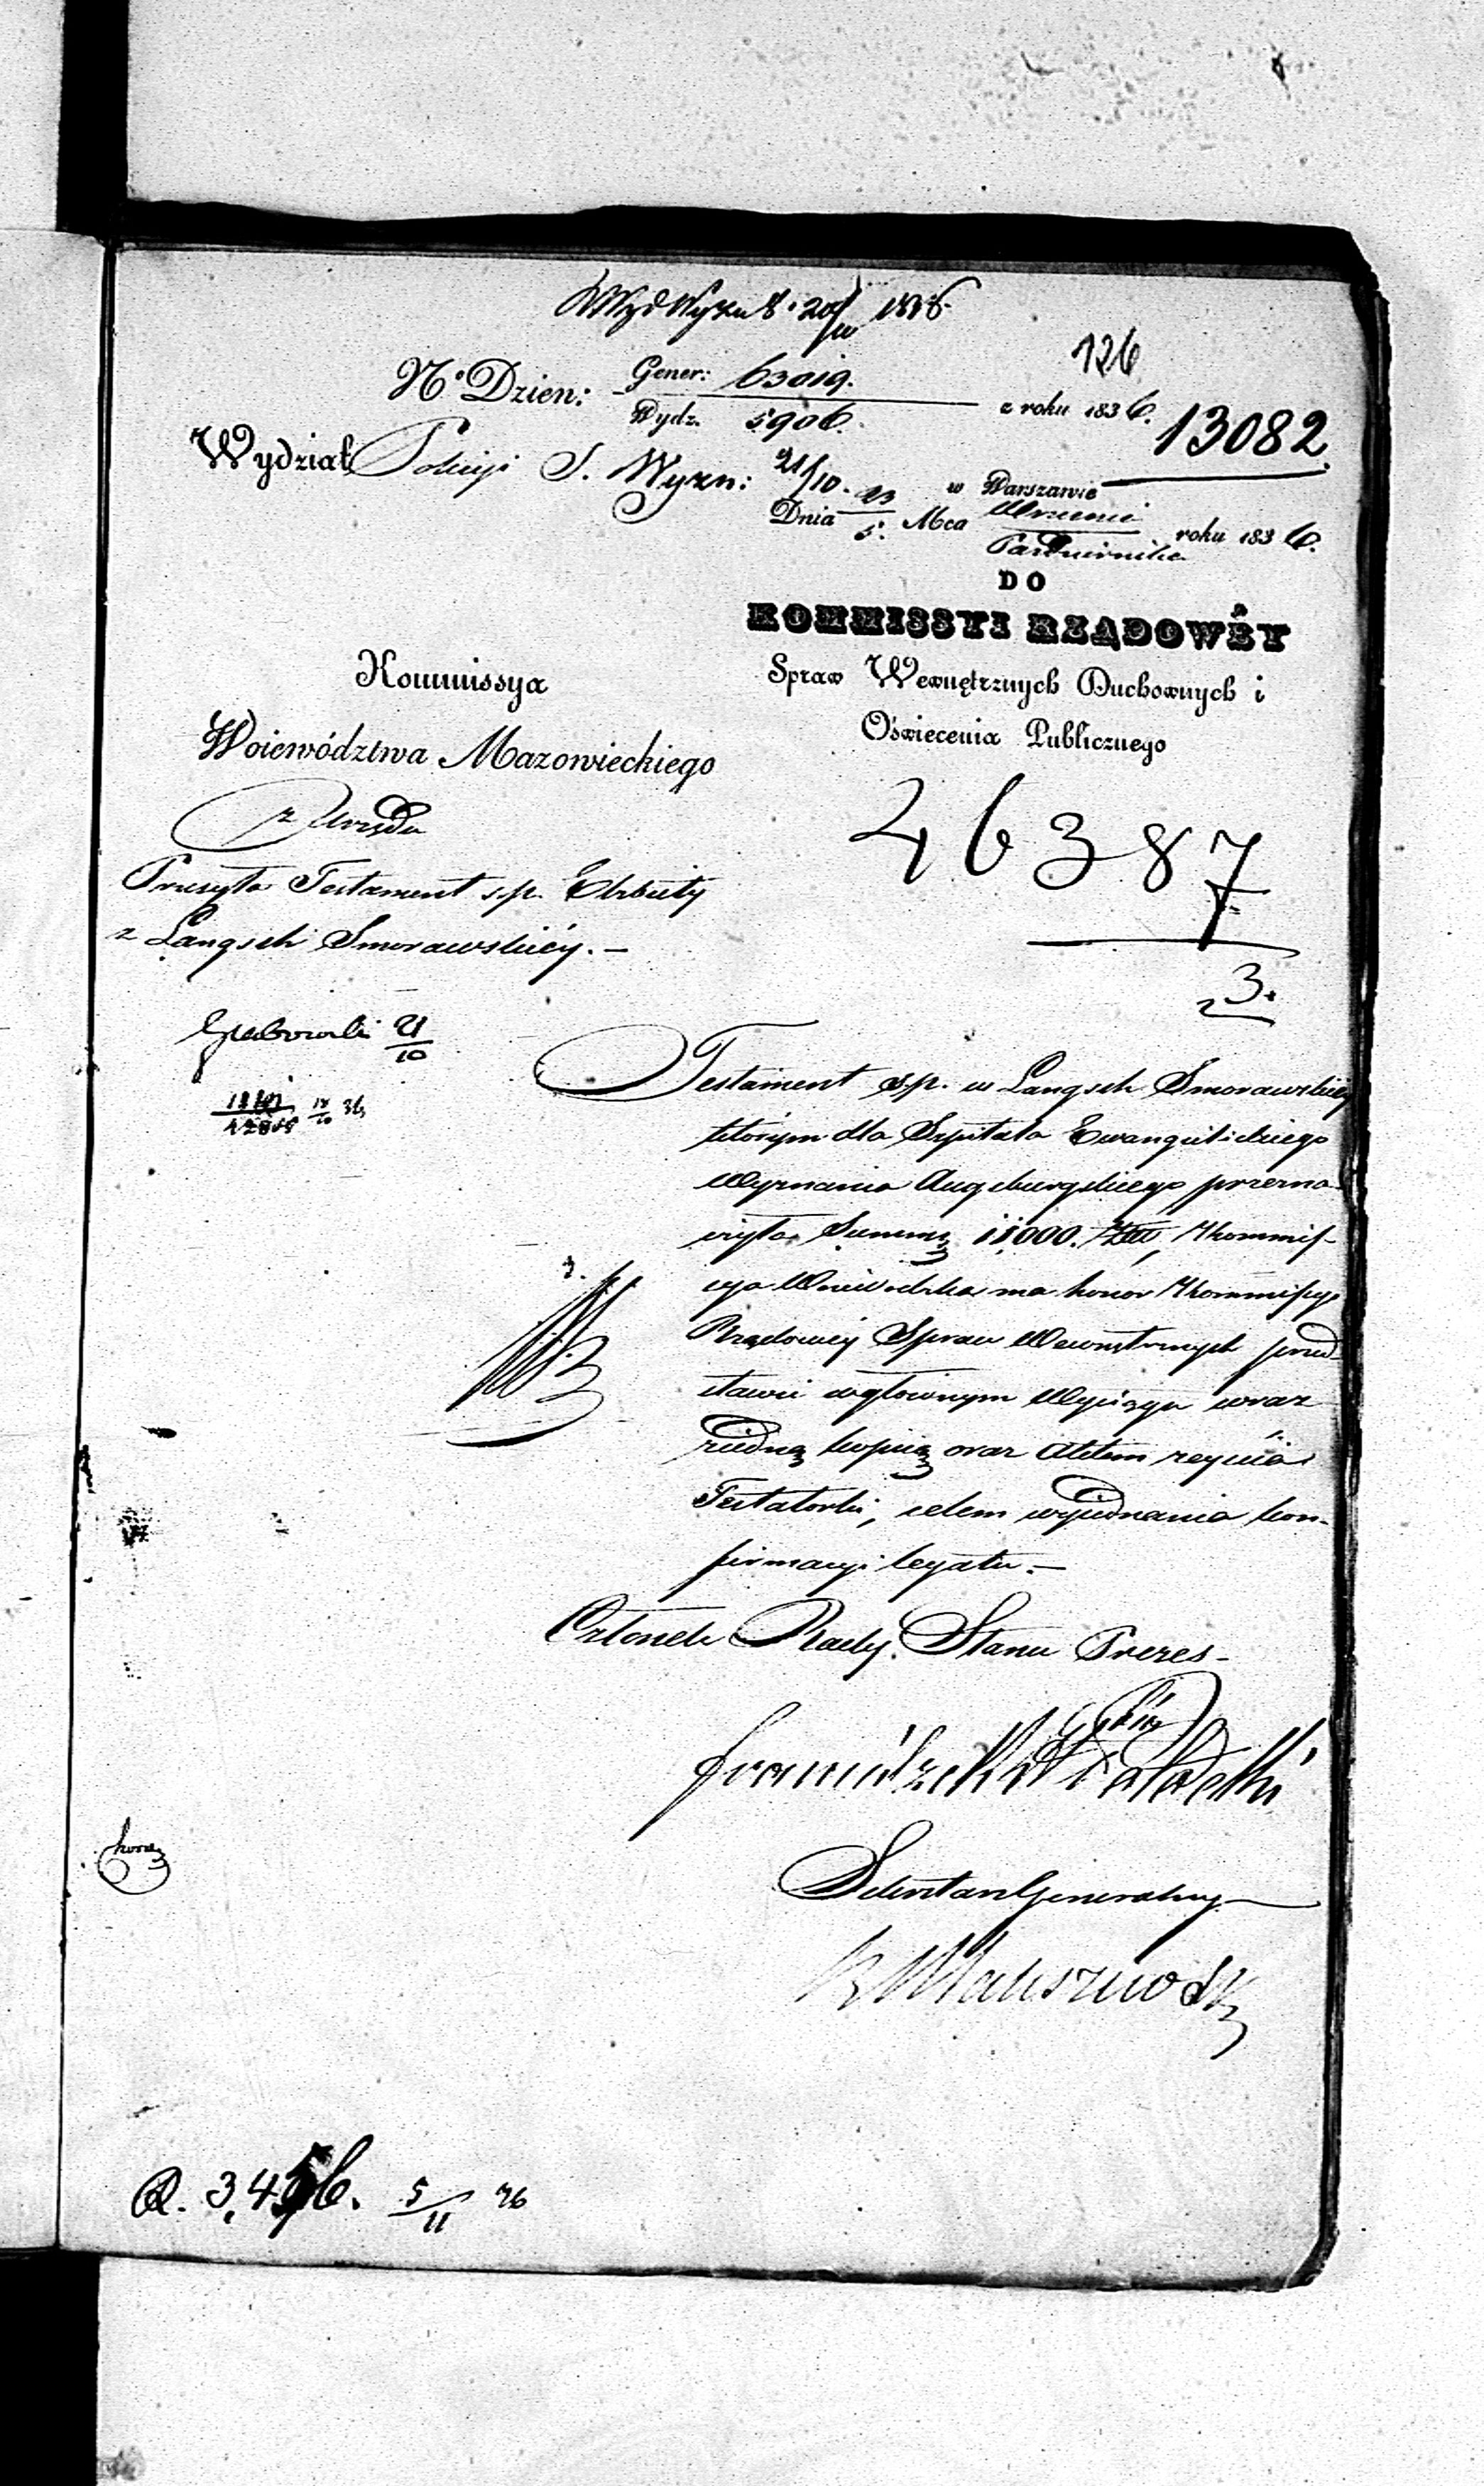 Wyd Wyzn 8. 20/10 1836.
126
No Dzien: Gener: 63019.
Wydz. 5906.
z roku 1836.
13082.
Wydział Policyi S. Wyzn: 21/10.
w Warszawie
Dnia 23/5. Mca Września/Października roku 1836.
DO
KOMMISSYI RZĄDOWÉY
Spraw Wewnętrznych Duchownych i
Oświecenia Publicznego
Kommissya
Woiewództwa Mazowieckiego
z Urzędu
Przesyła Testament s.p. Elżbiety
z Langsch Smorawskiéy. —
46387
3.
Grabowski 21/10
18/10 36
Testament s.p. w Langsch Smorawskiey
którym dla Szpitala Ewangelickiego
Wyznania Augsburgskiego przezna-
czyła Summę 11000. Złł, Kommis-
sya Woiewódzka ma honor Kommissyi
Rządowéy Spraw Wewnętrznych przed-
stawić w głównym Wyciągu wraz
z iedną kopią oraz Aktem zeyścia
Testatorki, celem wyiednania kon-
firmacyi legatu. —
Członek Rady Stanu Prezes —
Sekretarz Generalny —
R. 3,456. 5/11 36